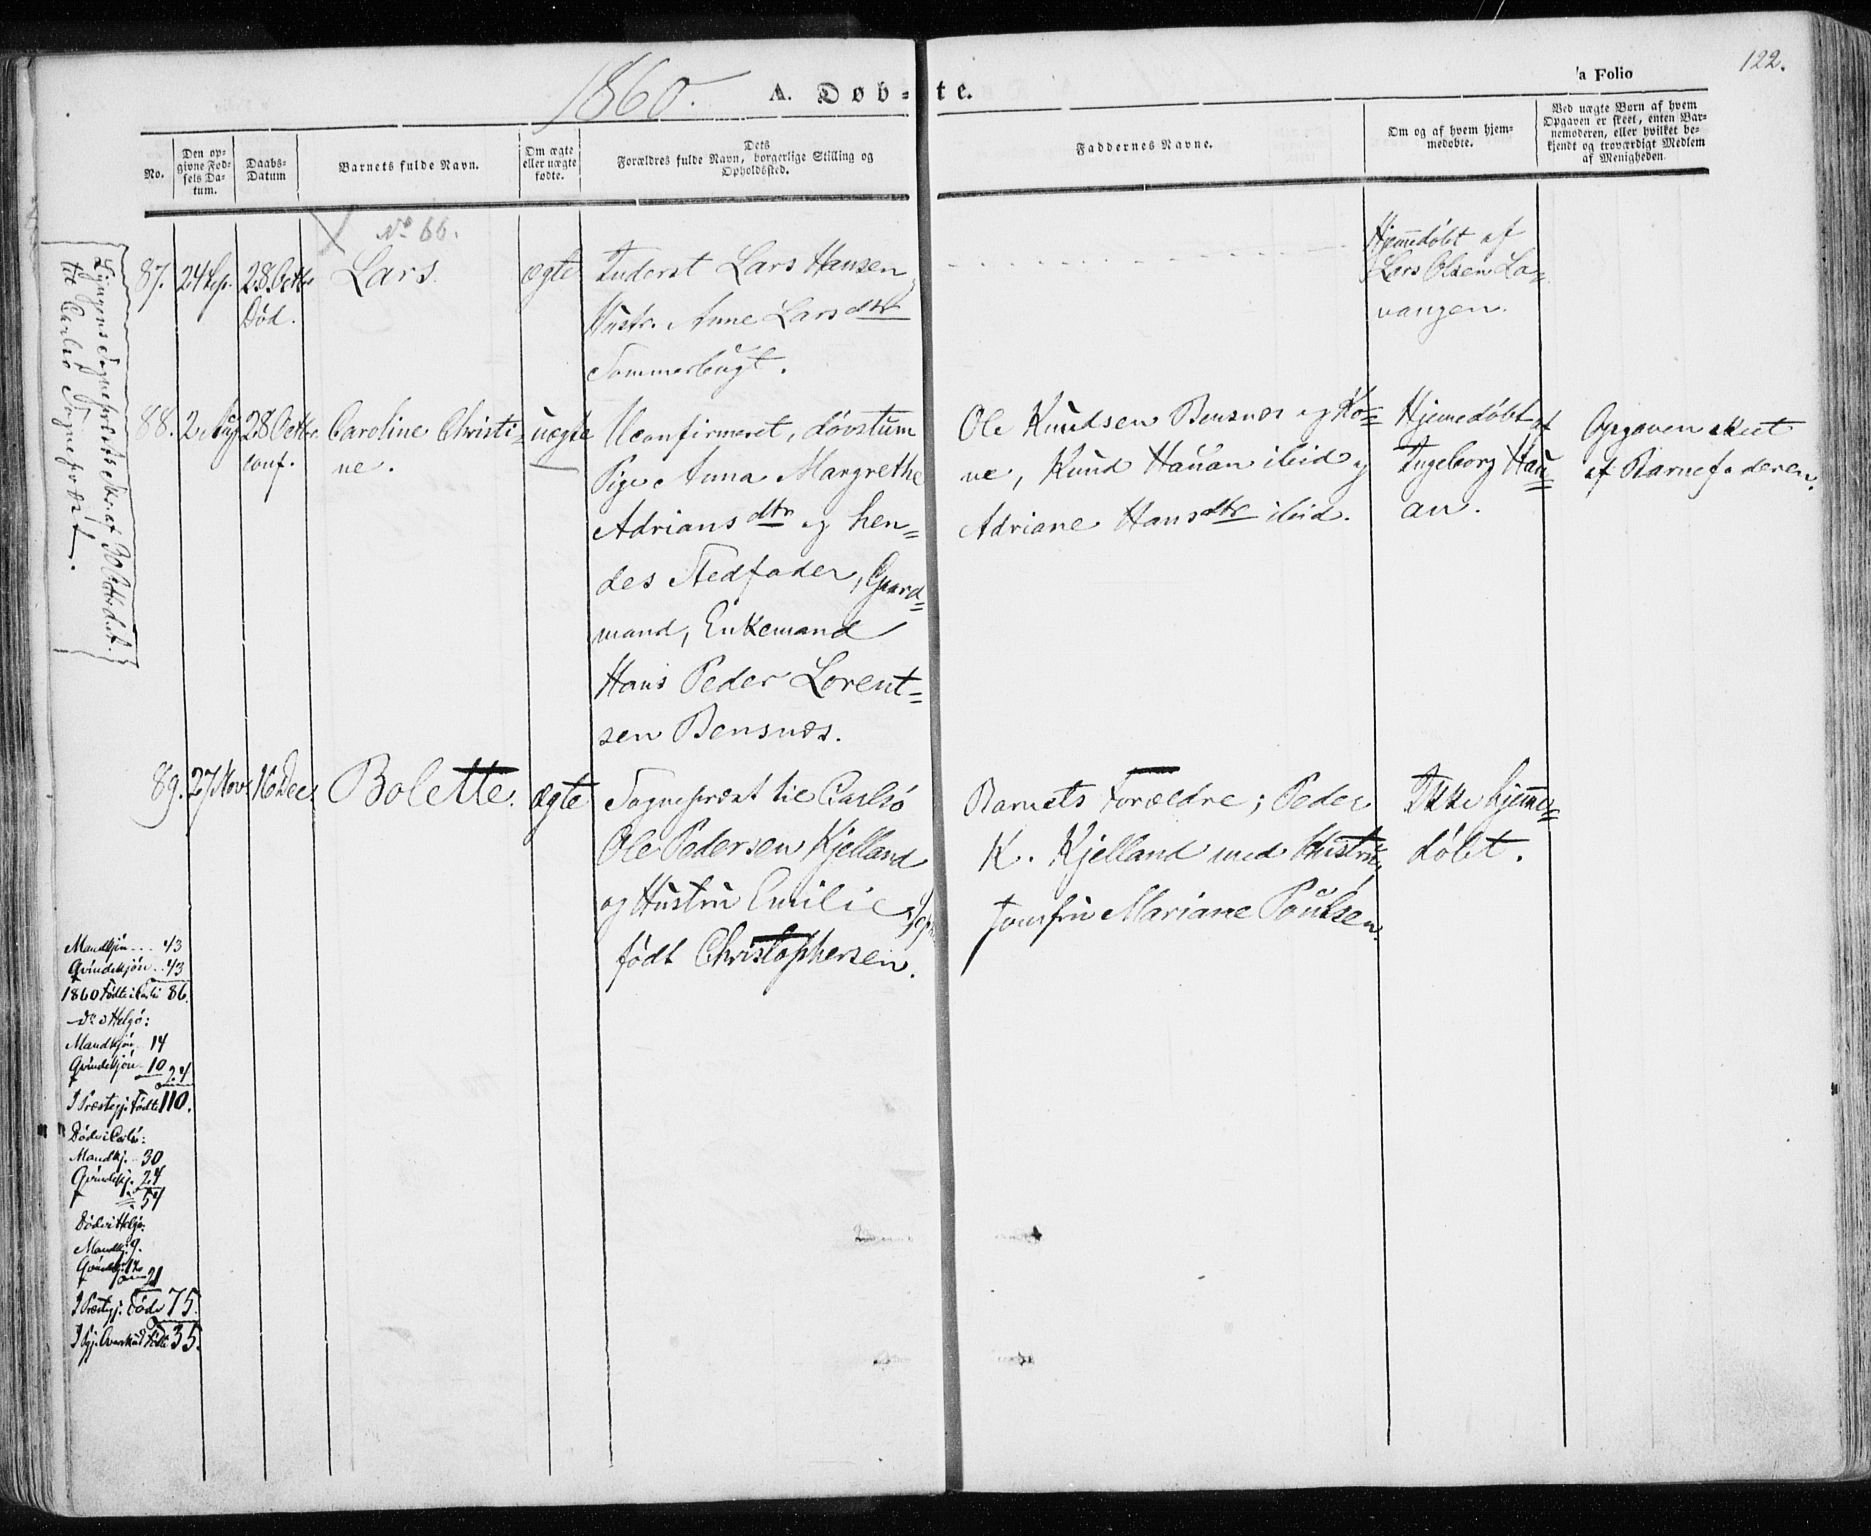 122.
1860.
A. Døb-te.
'a Folio
No.
Den op-
givne Fød-
sels Da-
tum.
Daabs-
Datum
Barnets fulde Navn.
Om ægte
eller uægte
fødte.
Dets
Forældres fulde Navn, borgerlige Stilling og
Opholdssted.
Faddernes Navne.
Om og af hvem hjem-
medøbte.
Ved uægte Børn af hvem
Opgaven er skeet, enten Bar-
nemoderen, eller hvilket be-
kjendt og troværdigt Medlem
af Menigheden.
No 66.
87. 24 Sep. 28 Octbr
Død.
Lars.
ægte
Inderst Lars Hansen,
Hustr. Anne Larsdtr
Sommerbugt.
Hjemedøbt af
Lars Olsen La-
vangen.
88. 2 Aug 28 Octbr.
conf.
Caroline Christi-
ne.
uægte
Uconfirmeret, døvstum
Pige Anna Margrethe
Adriansdtr og hen-
des Stedfader, Gaard-
mand, Enkemand
Hans Peder Lorent-
sen Bensnæs.
Ole Knudsen Bensnæs og Ko-
ne, Knud Hauan ibid og
Adriane Hansdtr ibid.
Hjemedøbt af
Ingeborg Hau-
an.
Opgaven skeet
af Barnefaderen.
89. 27 Nov. 16 Dec.
Bolette.
ægte
Sognepræst til Carlsø
Ole Pedersen Kjelland
og Hustru Emilie
født Christophersen.
Barnets Forældre; Peder
K. Kjelland med Hustru,
Jomfru Mariane Poulsen.
Ikke hjeme-
døbt.
til Carlsø Sognepræst.
Mandkjøn... 43
Qvindekjøn.. 43
1860 Fødte i Carlsø 86.
do i Helgø:
Mandkjøn. 14
Qvindekjøn. 10
24
I Præstegj. Fødte 110.
Døde i Carlsø:
Mandkj. 30
Qvindekj. 24
54
Døde i Helgø.
Mandkj. 9.
Qvindekj. 12
21
I Præstgj. Døde 75.
35.